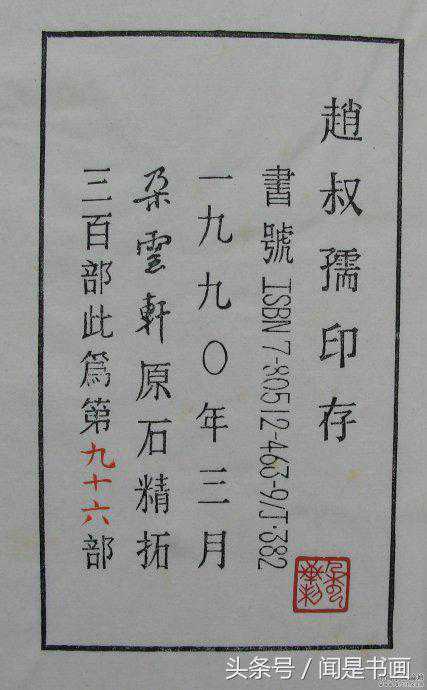 趙叔孺印存
書號ISBN7-80512-463-9/J·382
一九九〇年三月
朵雲軒原石精拓
三百部此爲第九十六部
头条号 / 闻是书画